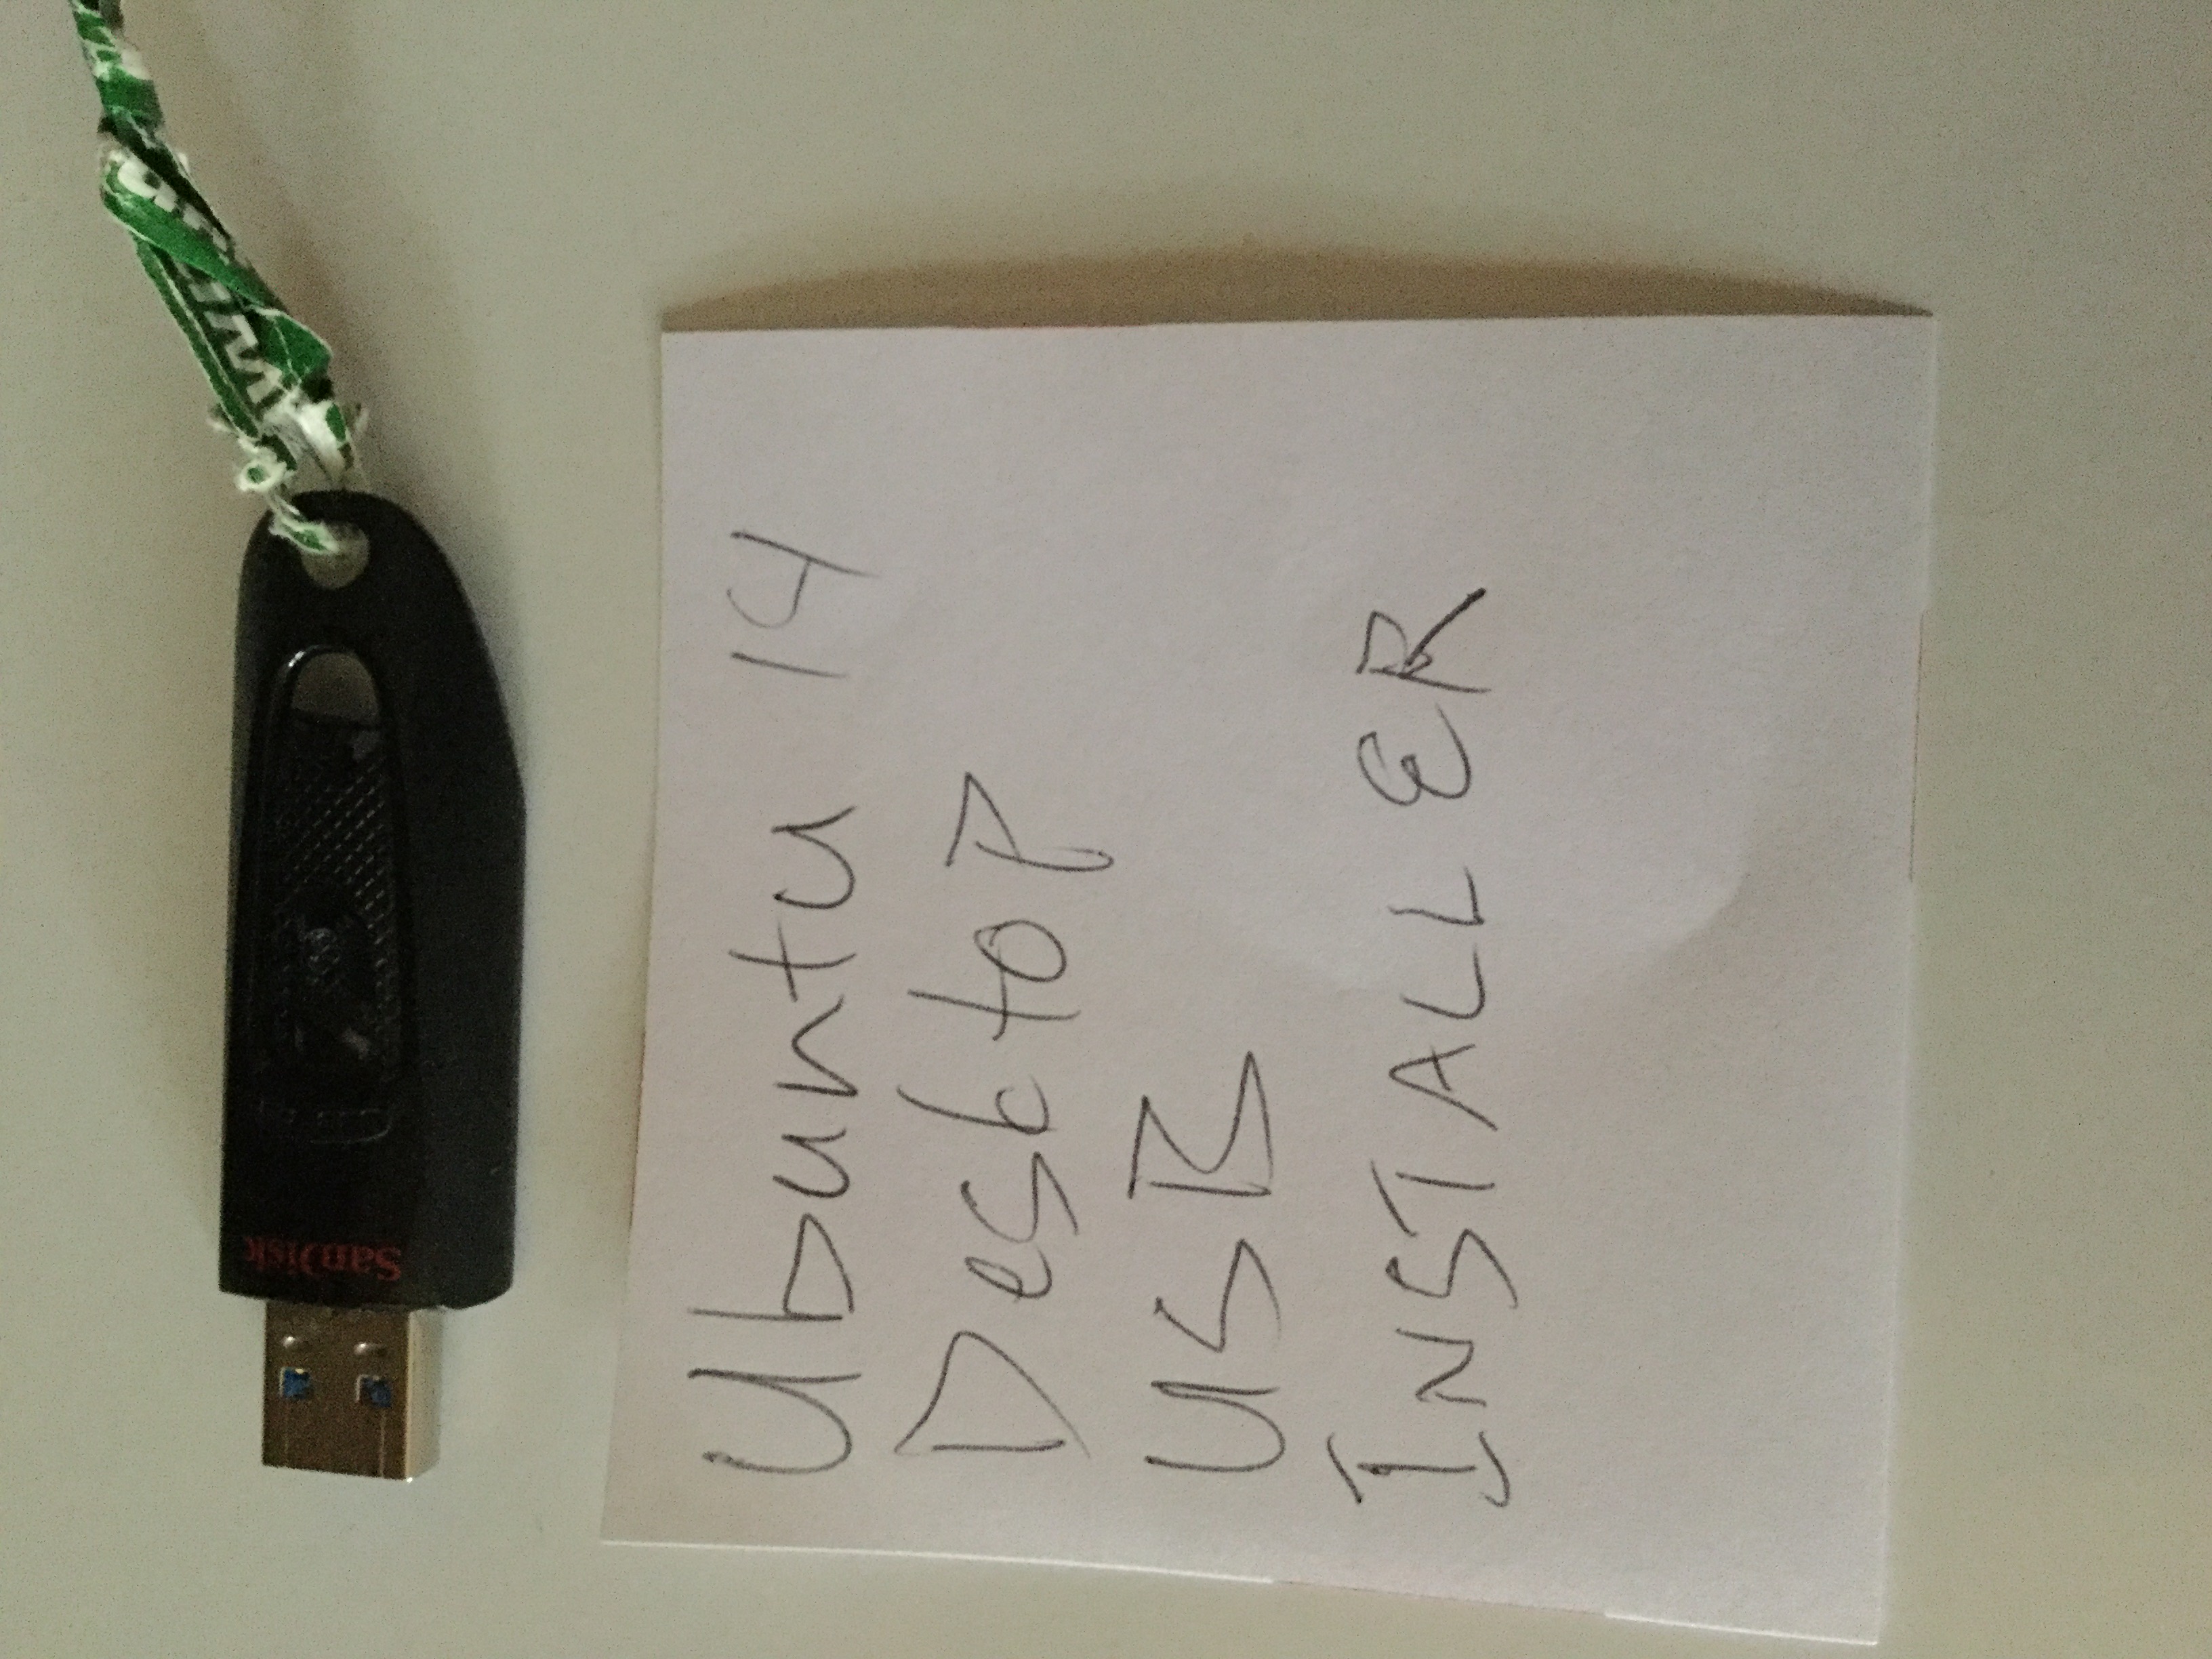 Ubuntu 14
Desktop
USB
INSTALLER
SanDisk